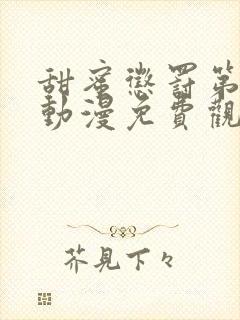 甜蜜懲罰第
動漫免費觀
芥見下々